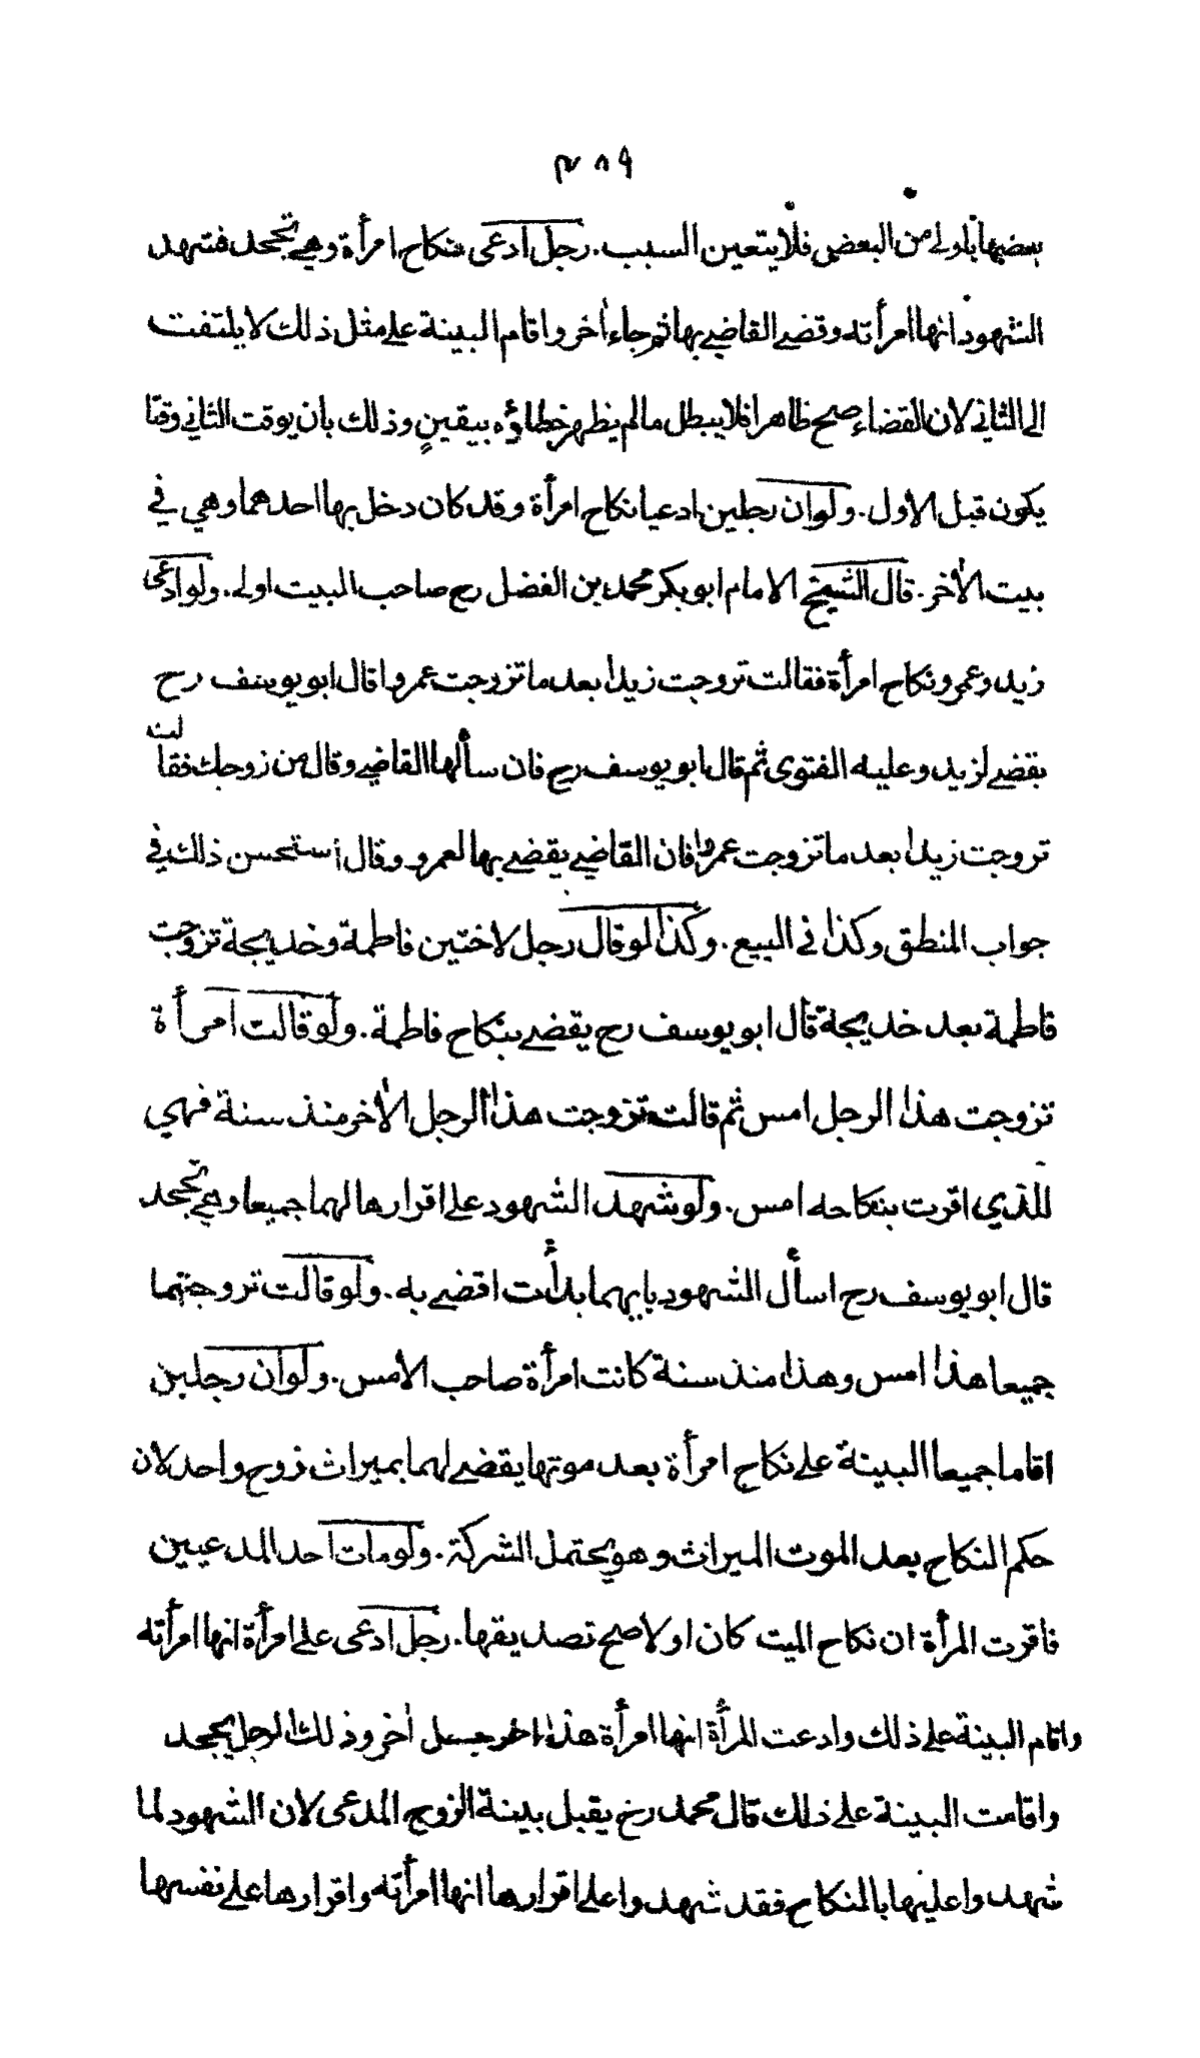 ٣٨٩
بعضها باولى من البعض فلا يتعين السبب. رجل ادعى نكاح امرأة وهي تجحد فشهد
الشهود انها امرأته وقضى القاضي بها ثم جاء آخر واقام البينة على مثل ذلك لا يلتفت
الى الثاني لان القضاء صح ظاهرا فلا يبطل مالم يظهر خطاؤه بيقينٍ وذلك بان يوقت الثاني وقتا
يكون قبل الاول. ولو ان رجلين ادعيا نكاح امرأة وقد كان دخل بها احدهما وهي في
بيت الآخر. قال الشيخ الامام ابو بكر محمد بن الفضل رح صاحب البيت اولى. ولو ادعى
زيد وعمرو نكاح امرأة فقالت تزوجت زيدا بعد ما تزوجت عمروا قال ابو يوسف رح
يقضي لزيد وعليه الفتوى ثم قال ابو يوسف رح فان سألها القاضي وقال من زوجك فقالت
تزوجت زيدا بعد ما تزوجت عمروا فان القاضي يقضي بها لعمرو وقال أستحسن ذلك في
جواب المنطق وكذا في البيع. وكذا لو قال رجل لاختين فاطمة وخديجة تزوجت
فاطمة بعد خديجة قال ابو يوسف رح يقضي بنكاح فاطمة. ولو قالت امرأة
تزوجت هذا الرجل امس ثم قالت تزوجت هذا الرجل الآخر منذ سنة فهي
للذي اقرت بنكاحه امس. ولو شهد الشهود على اقرارها لهما جميعا وهي تجحد
قال ابو يوسف رح اسأل الشهود بايهما بدأت اقضي به. ولو قالت تزوجتهما
جميعا هذا امس وهذا منذ سنة كانت امرأة صاحب الأمس. ولو ان رجلين
اقاما جميعا البينة على نكاح امرأة بعد موتها يقضى لهما بميراث زوج واحد لان
حكم النكاح بعد الموت الميراث وهو يحتمل الشركة. ولو مات احد المدعيين
فاقرت المرأة ان نكاح الميت كان اولا صح تصديقها. رجل ادعى على امرأة انها امرأته
واقام البينة على ذلك وادعت المرأة انها امرأة هذا آخر وذلك الرجل يجحد
واقامت البينة على ذلك قال محمد رح يقبل بينة الزوج المدعى لان الشهود لما
شهدوا عليها بالنكاح فقد شهدوا على اقرارها انها امرأته واقرارها على نفسها